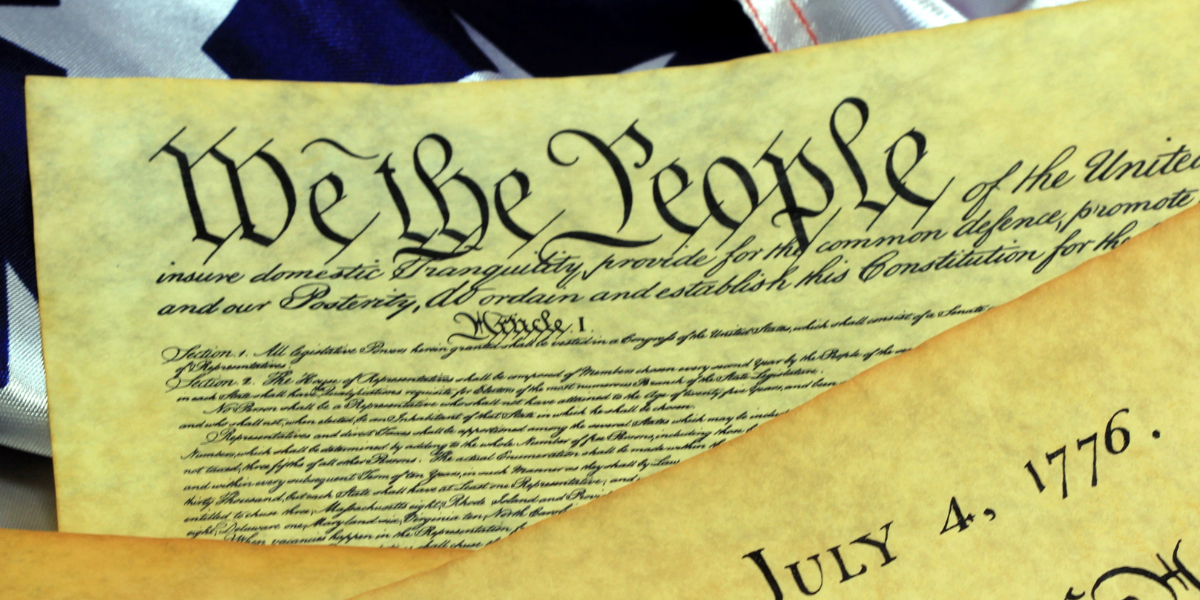 We the People of the United
insure domestic Tranquility, provide for the common defence, promote
and our Posterity, do ordain and establish this Constitution for the
Article. I.
Section. 1. All legislative Powers herein granted shall be vested in a Congress of the United States, which shall consist of a Senate
of Representatives.
Section. 2. The House of Representatives shall be composed of Members chosen every second Year by the People of the
in each State shall have the Qualifications requisite for Electors of the most numerous Branch of the State Legislature.
No Person shall be a Representative who shall not have attained to the Age of twenty five Years, and been
and who shall not, when elected, be an Inhabitant of that State in which he shall be chosen.
Representatives and direct Taxes shall be apportioned among the several States which may be
Numbers, which shall be determined by adding to the whole Number of free Persons, including those
not taxed, three fifths of all other Persons. The actual Enumeration shall be made within
and within every subsequent Term of ten Years, in such Manner as they shall by Law
thirty Thousand, but each State shall have at Least one Representative; and
entitled to chuse three, Massachusetts eight, Rhode Island and
eight, Delaware one, Maryland six, Virginia ten, North
When vacancies happen in the Representation
shall chuse
July 4, 1776.